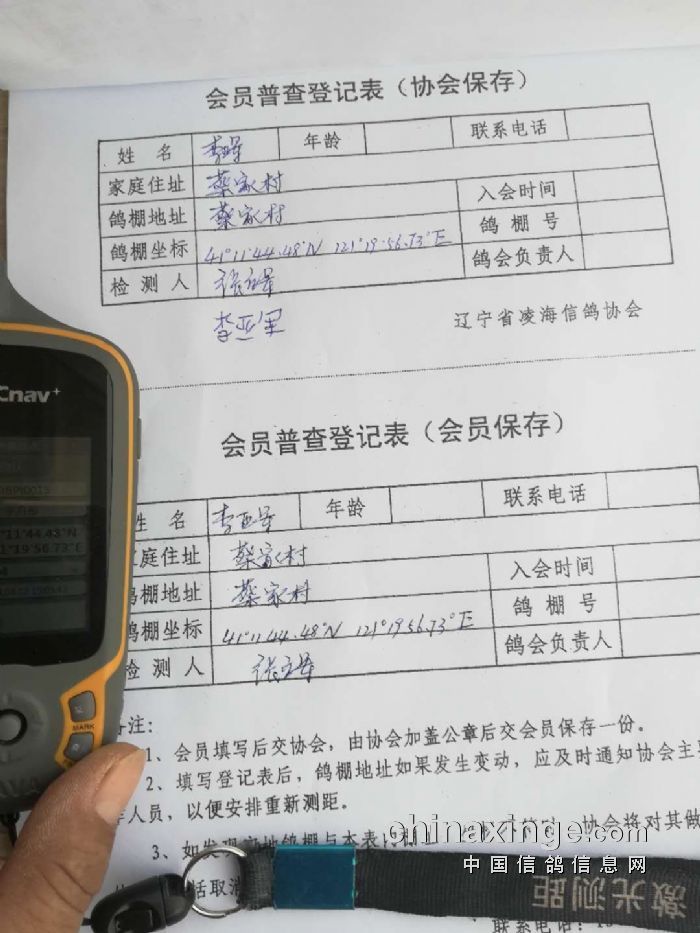 会员普查登记表（协会保存）
姓 名 年龄 联系电话
家庭住址 蔡家村
入会时间
鸽棚地址 蔡家村
鸽棚号
鸽棚坐标 41°11′44.48°N 121°19.56.73°E
鸽会负责人
检测人
辽宁省凌海信鸽协会
会员普查登记表（会员保存）
名 李亚军 年龄 联系电话
庭住址 蔡家村
入会时间
鸽棚地址 蔡家村
鸽棚号
鸽棚坐标 41°11.44.48°N 121°19 56.73°E
鸽会负责人
检测人
Cnav+
11'44.43"N
1°19'56.73"E
MARK
备注：
1、会员填写后交协会，由协会加盖公章后交会员保存一份。
2、填写登记表后，鸽棚地址如果发生变动，应及时通知协会主
人员，以便安排重新测距。
3、如发现
协会将对其做
chinaxinge.com
中国信鸽信息网
取消
激光测距
联系电话：